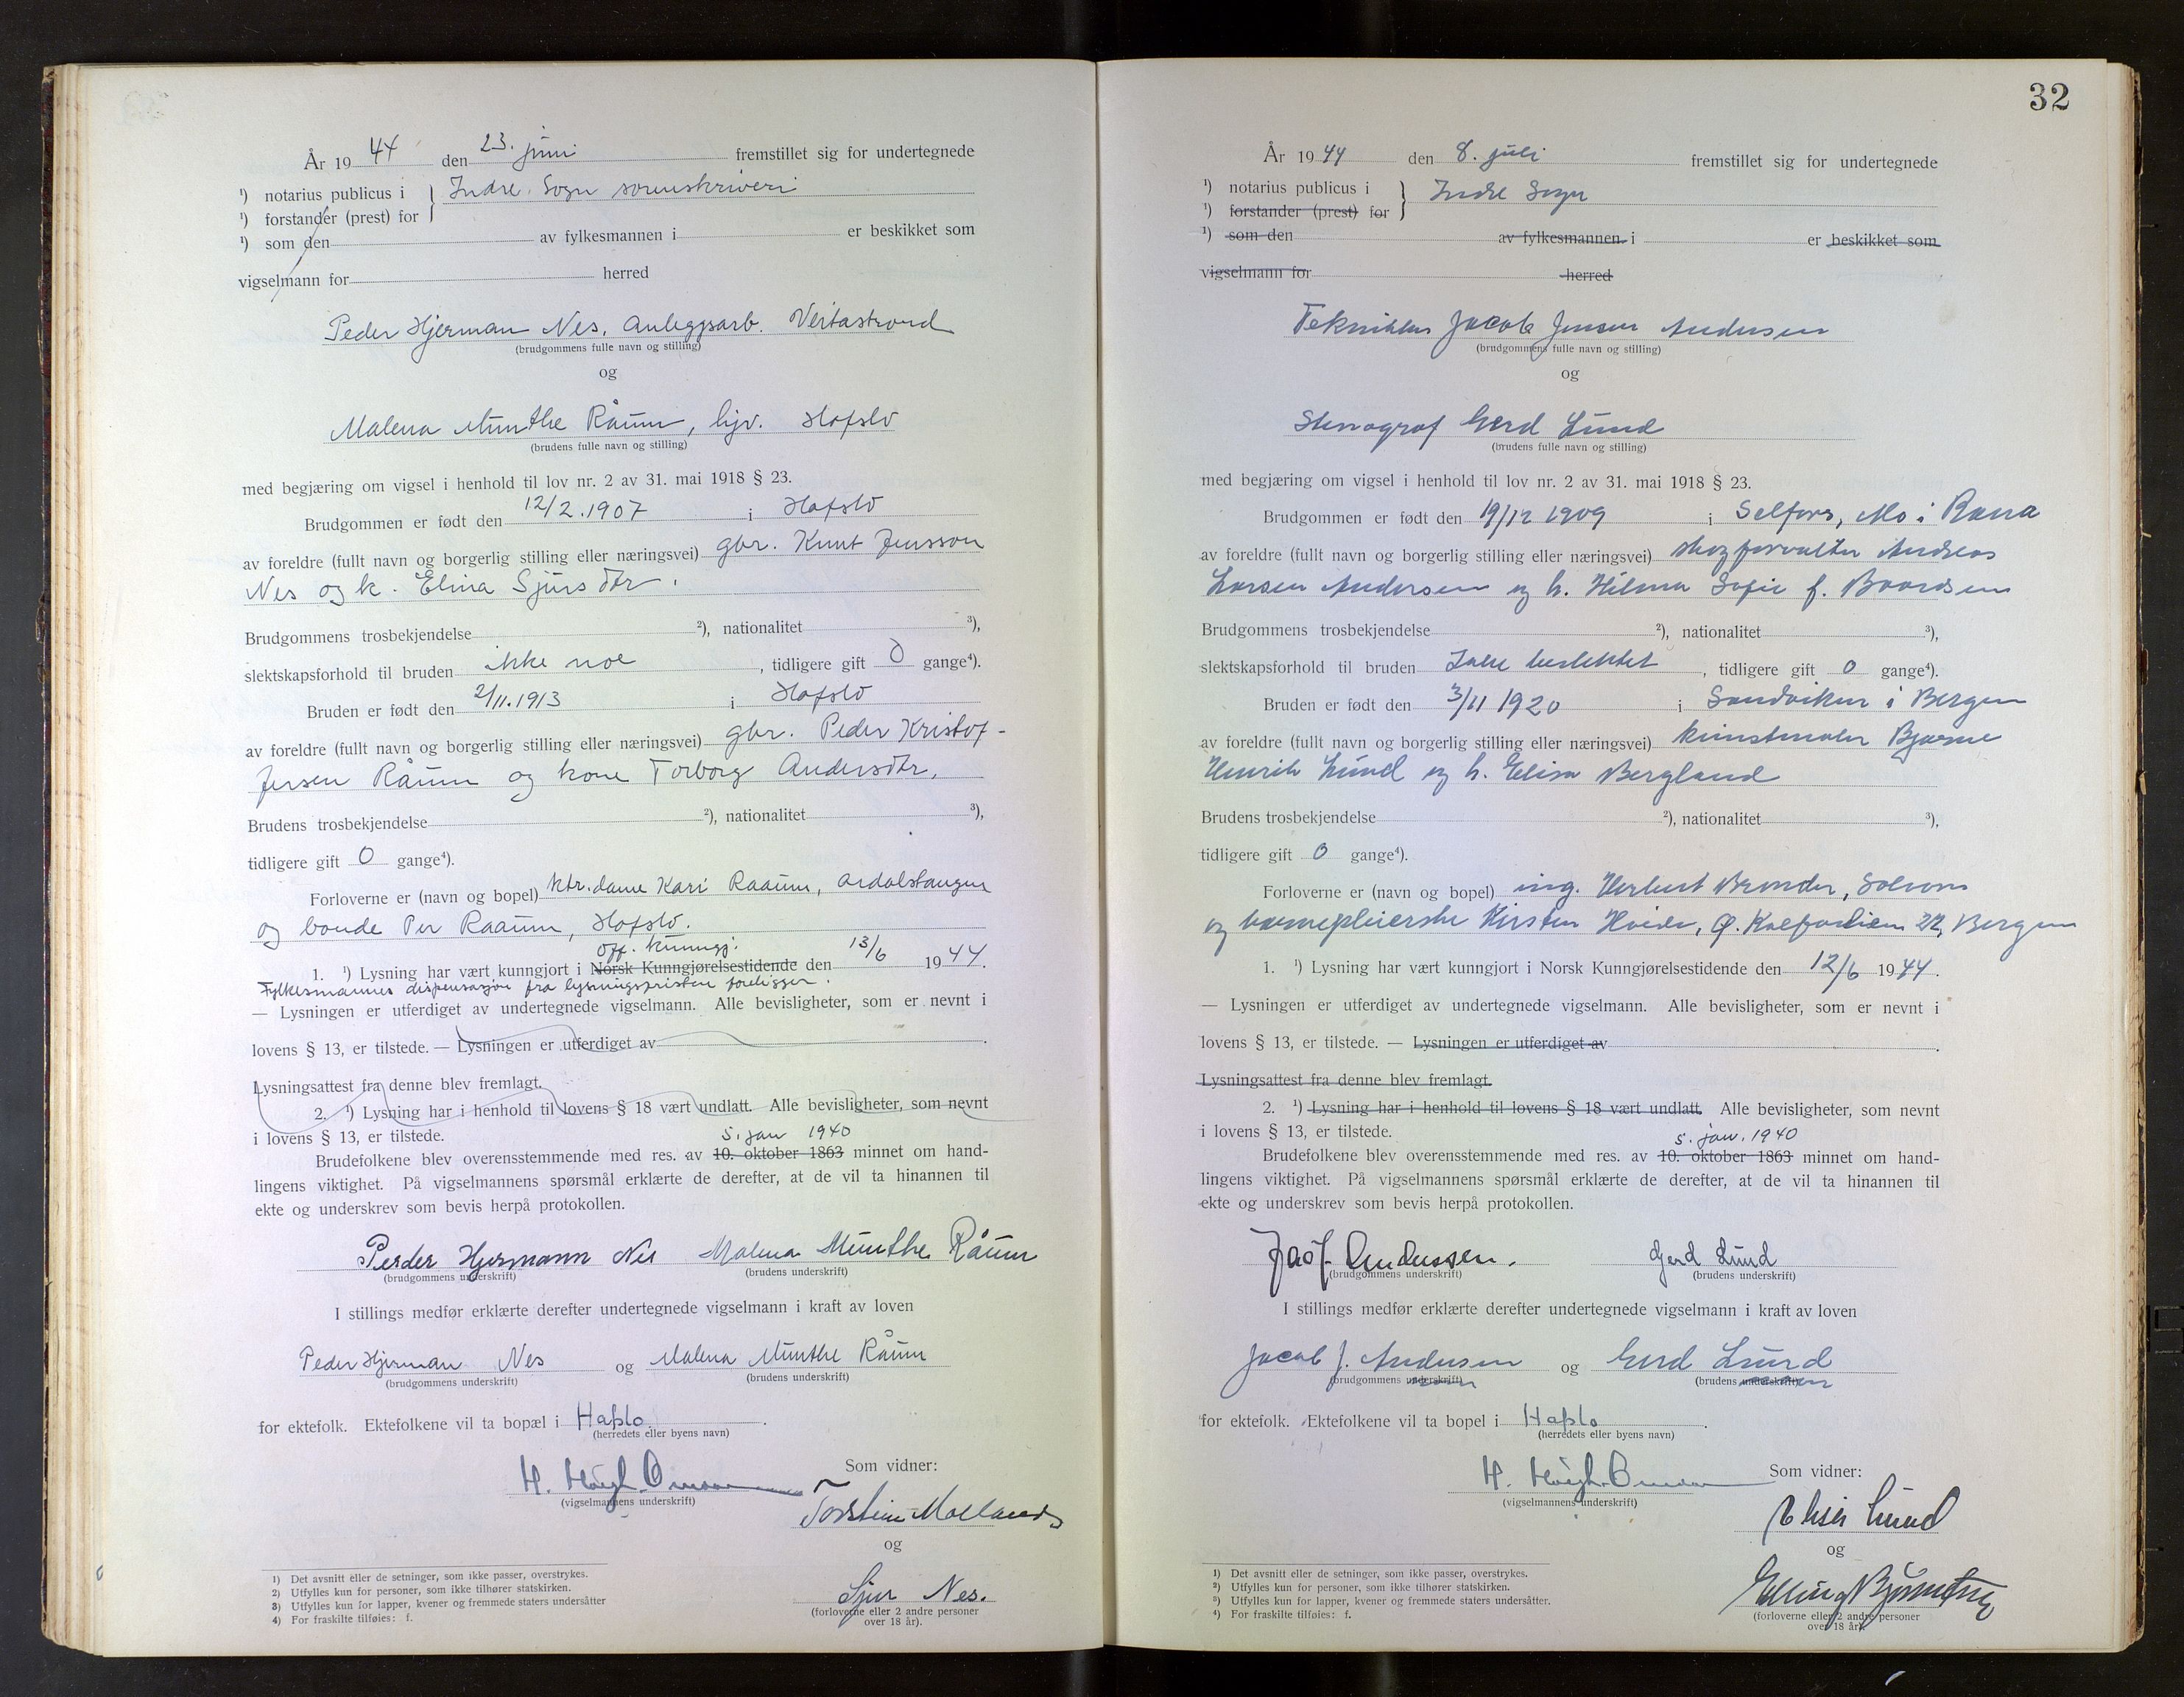 År 19 44 den 23. juni fremstillet sig for undertegnede
¹) notarius publicus i } Indre Sogn sorenskriveri
¹) forstander (prest) for
¹) som den av fylkesmannen i er beskikket som
vigselmann for herred
Peder Hjerman Nes, Anleggsarb. Veitastrond
(brudgommens fulle navn og stilling)
og
Malena Munthe Råum, hjv. Hafslo
(brudens fulle navn og stilling)
med begjæring om vigsel i henhold til lov nr. 2 av 31. mai 1918 § 23.
Brudgommen er født den 12/2.1907 i Hafslo
av foreldre (fullt navn og borgerlig stilling eller næringsvei) gbr. Knut Jensson
Nes og k. Elina Sjursdtr.
Brudgommens trosbekjendelse ²), nationalitet ³),
slektskapsforhold til bruden ikke noe, tidligere gift 0 gange⁴).
Bruden er født den 2/11.1913 i Hafslo
av foreldre (fullt navn og borgerlig stilling eller næringsvei) gbr. Peder Kristof-
fersen Råum og kone Torborg Andersdtr.
Brudens trosbekjendelse ²), nationalitet ³),
tidligere gift 0 gange⁴).
Forloverne er (navn og bopel) ktr.dame Kari Raaum, Ardalstangen
og bonde Per Raaum, Hafslo.
off. kunngj.
1. ¹) Lysning har vært kunngjort i Norsk Kunngjørelsestidende den 13/6 1944.
Fylkesmannes dispensasjon fra lysningsfristen foreligger.
— Lysningen er utferdiget av undertegnede vigselmann. Alle bevisligheter, som er nevnt i
lovens § 13, er tilstede. — Lysningen er utferdiget av .
Lysningsattest fra denne blev fremlagt.
2. ¹) Lysning har i henhold til lovens § 18 vært undlatt. Alle bevisligheter, som nevnt
i lovens § 13, er tilstede.
5. jan 1940
Brudefolkene blev overensstemmende med res. av 10. oktober 1863 minnet om hand-
lingens viktighet. På vigselmannens spørsmål erklærte de derefter, at de vil ta hinannen til
ekte og underskrev som bevis herpå protokollen.
Perder Hjermann Nes Malena Munthe Råum
(brudgommens underskrift) (brudens underskrift)
I stillings medfør erklærte derefter undertegnede vigselmann i kraft av loven
Peder Hjerman Nes og Malena Munthe Råum
(brudgommens underskrift) (brudens underskrift)
for ektefolk. Ektefolkene vil ta bopæl i Hafslo.
(herredets eller byens navn)
Som vidner:
H. Høgh-Omsen
(vigselmannens underskrift)
Torstein Molland
og
Sjur Nes.
(forloverne eller 2 andre personer
over 18 år).
1) Det avsnitt eller de setninger, som ikke passer, overstrykes.
2) Utfylles kun for personer, som ikke tilhører statskirken.
3) Utfylles kun for lapper, kvener og fremmede staters undersåtter
4) For fraskilte tilføies: f.
32
År 1944 den 8. juli fremstillet sig for undertegnede
¹) notarius publicus i } Indre Sogn
¹) forstander (prest) for
¹) som den av fylkesmannen i er beskikket som
vigselmann for herred
Tekniker Jacob Jensen Andersen
(brudgommens fulle navn og stilling)
og
Stenograf Gerd Lund
(brudens fulle navn og stilling)
med begjæring om vigsel i henhold til lov nr. 2 av 31. mai 1918 § 23.
Brudgommen er født den 19/12 1909 i Selfors, Mo i Rana
av foreldre (fullt navn og borgerlig stilling eller næringsvei) skogforvalter Andreas
Larsen Andersen og h. Hilma Sofie f. Baardsen
Brudgommens trosbekjendelse ²), nationalitet ³),
slektskapsforhold til bruden Ikke beslektet, tidligere gift 0 gange⁴).
Bruden er født den 3/11 1920 i Sandviken i Bergen
av foreldre (fullt navn og borgerlig stilling eller næringsvei) kunstmaler Bjarne
Henrik Lund og h. Elisa Bergland
Brudens trosbekjendelse ²), nationalitet ³),
tidligere gift 0 gange⁴).
Forloverne er (navn og bopel) ing. Herbert
og barnepleierske Kirsten Ø. Kalfarlien 22, Bergen
1. ¹) Lysning har vært kunngjort i Norsk Kunngjørelsestidende den 12/6 1944.
— Lysningen er utferdiget av undertegnede vigselmann. Alle bevisligheter, som er nevnt i
lovens § 13, er tilstede. — Lysningen er utferdiget av .
Lysningsattest fra denne blev fremlagt.
2. ¹) Lysning har i henhold til lovens § 18 vært undlatt. Alle bevisligheter, som nevnt
i lovens § 13, er tilstede.
5. jan. 1940
Brudefolkene blev overensstemmende med res. av 10. oktober 1863 minnet om hand-
lingens viktighet. På vigselmannens spørsmål erklærte de derefter, at de vil ta hinannen til
ekte og underskrev som bevis herpå protokollen.
Jac J. Anderssen. Gerd Lund
(brudgommens underskrift) (brudens underskrift)
I stillings medfør erklærte derefter undertegnede vigselmann i kraft av loven
Jacob J. Andersen og Gerd Lund
(brudgommens underskrift) (brudens underskrift)
for ektefolk. Ektefolkene vil ta bopel i Hafslo.
(herredets eller byens navn)
Som vidner:
H. Høgh-Omsen
(vigselmannens underskrift)
Lund
og
(forloverne eller 2 andre personer
over 18 år).
1) Det avsnitt eller de setninger, som ikke passer, overstrykes.
2) Utfylles kun for personer, som ikke tilhører statskirken.
3) Utfylles kun for lapper, kvener og fremmede staters undersåtter.
4) For fraskilte tilføies: f.